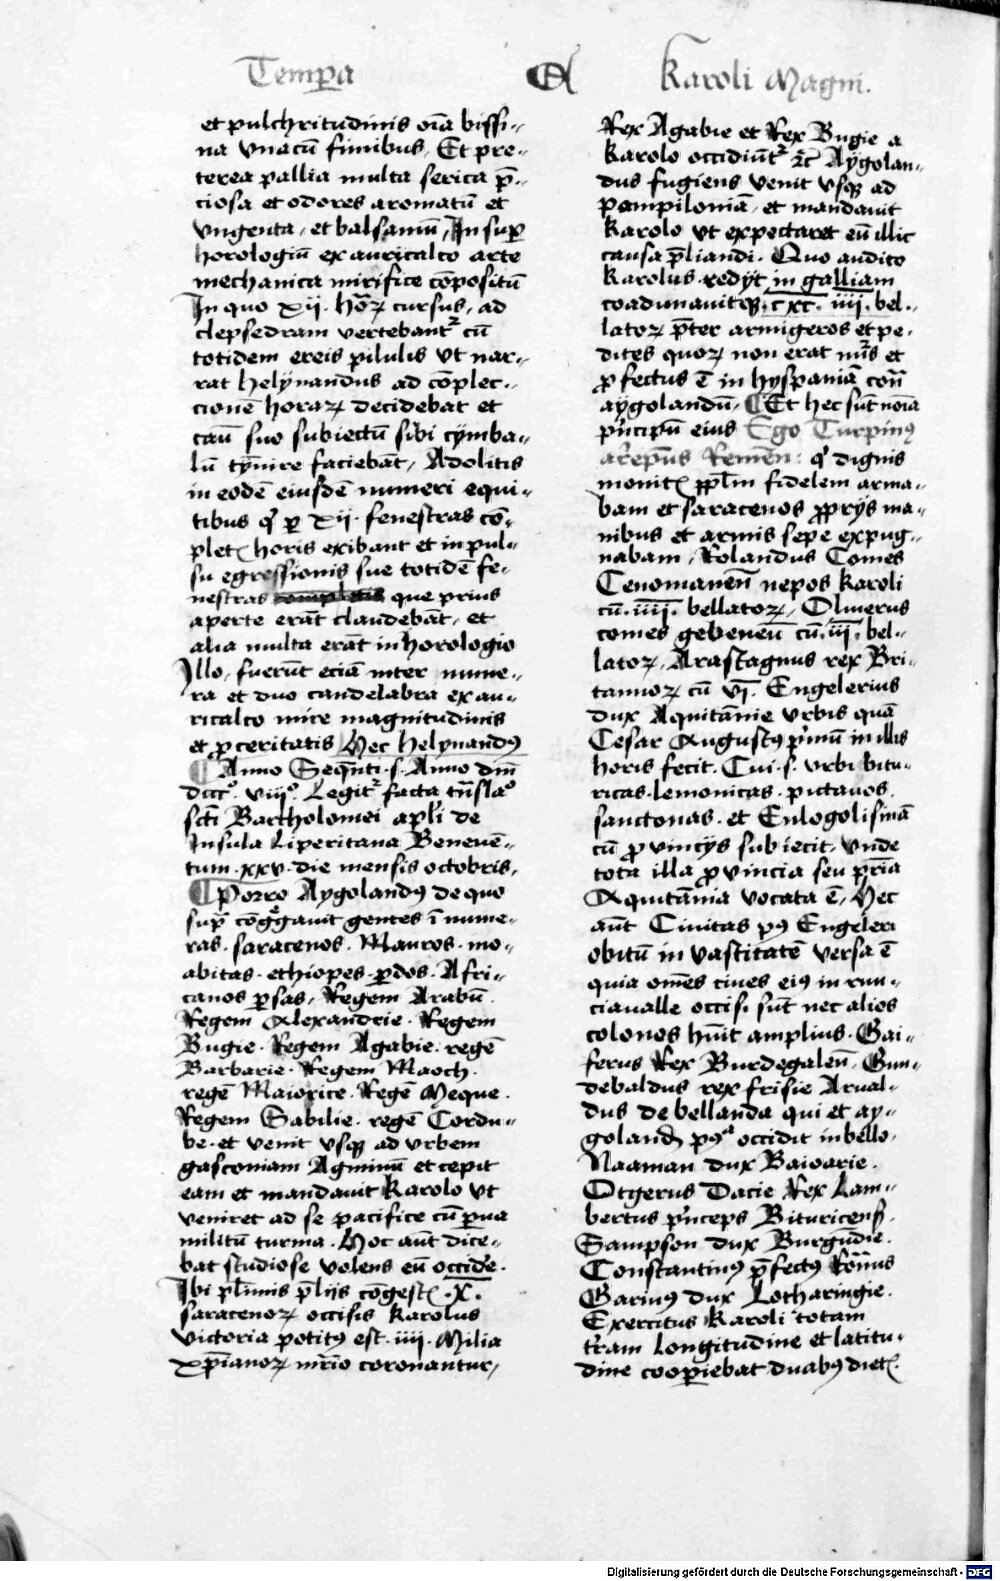 Temp̄a
Karoli Magni.
et pulchritudinis oīa bissi-
na vnacū funibus. Et pre-
terea pallia multa serica p̄-
ciosa et odores aromatū et
vngenta, et balsamū, In suꝑ
horologiū ex auricalco arte
mechanica mirifice cōpositū
In quo xij. hōꝝ cursus, ad
clepsedram vertebant᷑ cū
totidem ereis pilulis vt nar-
rat helynandus ad cōplec-
cionē horaꝝ decidebat et
casū suo subiectū sibi cymba-
lū tynnire faciebāt,
in eodē eiusdē numeri equi-
tibus qͥ ꝑ xij. fenestras cō-
pletꝭ horis exibant et inpul-
su egressionis sue totidē fe-
nestras que prius
aperte erāt claudebāt, et
alia multa erāt in horologio
Illo, fuerūt eciā inter mune-
ra et duo candelabra ex au-
ricalco mire magnitudinis
et ꝓceritatis Hec helynandꝯ
Anno Seq̄nti .s. Anno dn̄i
dcccͦ. viijͦ. Legit᷑ facta tn̄slaͦ
scti Bartholomei apl̄i de
Insula Liperitana Beneuē-
tum .xxv. die mensis octobris.
Porro Aygolandꝯ de quo
sup̄ cōgͣgauit gentes īnume-
ras. saracenos. Mauros. mo-
abitas. ethiopes. ꝑdos. Afri-
canos ꝑsas, Regem Arabū.
Regem Alexandrie. Regem
Bugie. Regem Agabie. regē
Barbarie. Regem Maoch.
regē Maiorice. Regē Meque.
Regem Sabilie. regē Cordu-
be. et venit vsqꝫ ad vrbem
gasconiam Agminū et cepit
eam et mandauit Karolo vt
veniret ad se pacifice cū ꝑua
militū turma. Hoc aūt dice-
bat studiose volens eū occidē.
Ibi p̄limis p̄lijs cōgestꝭ .x̄.
saracenoꝝ occisis Karolus
victoria potitꝯ est. iiij. Milia
xp̄ianoꝝ mr̄io coronantur,
Rex Agabie et Rex Bugie a
Karolo occidūt᷑ Aygolan-
dus fugiens venit vsqꝫ ad
pampiloniā. et mandauit
Karolo vt expectaret eū illic
causa p̄liandi. Quo audito
Karolus redijt in galliam
coadunauitqꝫ .c xc. iiij. bel-
latoꝝ p̄ter armigeros et pe-
dites quoꝝ non erat nūꝰs et
ꝓfectus ē in hyspaniā cont̄
aygolandū, Et hec sūt noīa
pͥncipū eius Ego Turpinꝯ
arep̄us Remēn: qͥ dignis
monitꝭ pp̄lm fidelem arma-
bam et saracenos ꝓprijs ma-
nibus et armis sepe expug-
nabam, Rolandus Comes
Cenomanen̄ nepos Karoli
cū .iiij. bellatoꝝ, Oliuerus
comes gebenen̄ cū .iij. bel-
latoꝝ, Arastagnus rex Bri-
tannoꝝ cū vj. Engelerius
dux Aquitanie vrbis quā
Cesar Augustꝯ pͥmū in illis
horis fecit. Cui .s. vrbi bitu-
ricas. lemonicas. pictauos.
sanctonas. et Enlogolisimā
cū ꝓvincijs subiecit. vnde
tota illa ꝓvincia seu pͣria
Aquitania vocata ē, Hec
aūt Ciuitas pꝯ Engeleri
obitū in vastitatē versa ē
quia om̄es ciues eiꝯ in run-
ciaualle occisi sūt nec alios
colonos hūit amplius. Gai-
ferus Rex Burdegalen̄. Gun-
debaldus rex frisie Arual-
dus de bellanda qui et ay-
goland̄ pꝯᵃ occidit in bello.
Naaman dux Baioarie.
Otgerus Dacie Rex Lam-
bertus pͥnceps Bituricen̄.
Sampson dux Burgūdie.
Constantinꝯ p̄fectꝯ Romīus
Garinꝯ dux Lotharingie.
Exercitus Karoli totam
tr̄am longitudine et latitu-
dine cooꝑiebat duabꝯ dietꝭ.
Digitalisierung gefördert durch die Deutsche Forschungsgemeinschaft - DFG